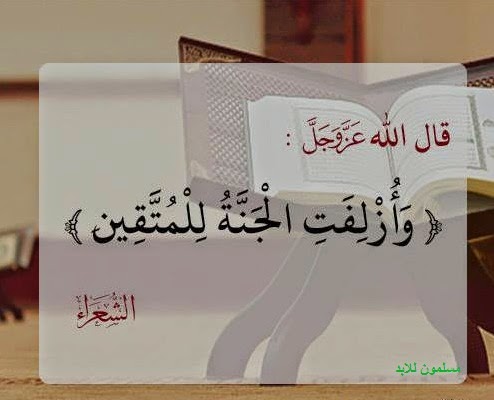 قال الله عَزَّوَجَلَّ :
﴿ وَأُزْلِفَتِ الْجَنَّةُ لِلْمُتَّقِينَ ﴾
الشُّعَرَاء
مسلمون للابد